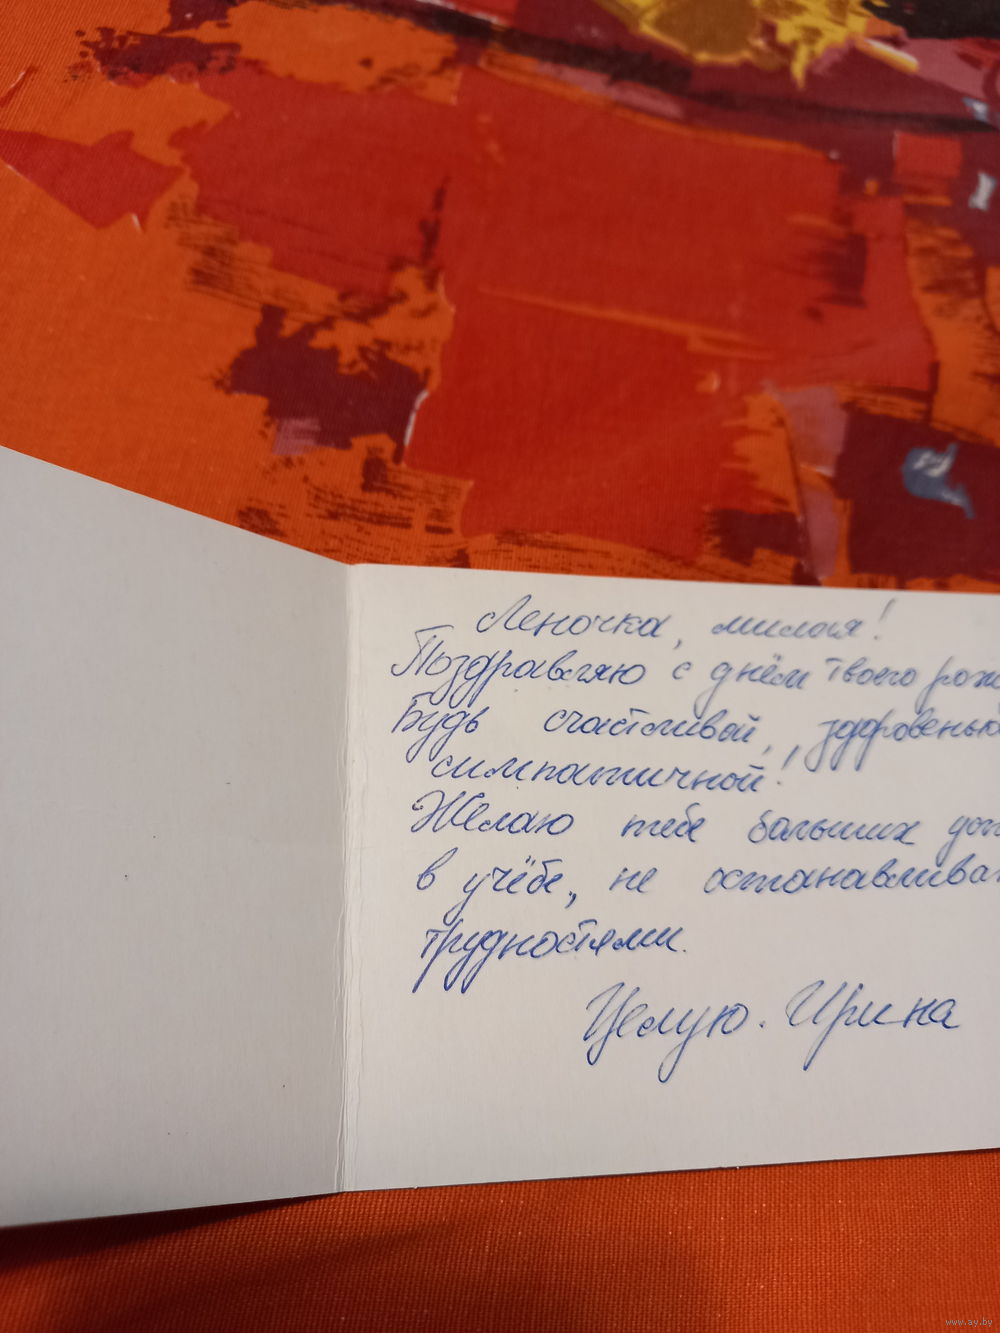 Леночка, милая!
Поздравляю с днём твоего рож
Будь счастливой, здоровеньк
симпатичной!
Желаю тебе больших
в учёбе, не останавливат
трудностями.
Целую. Ирина
www.ay.by